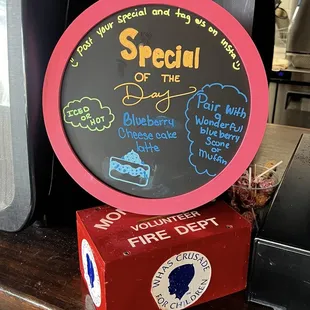 Post your special and tag us on Insta
Special
OF THE
Day
ICED
or
HOT
Blueberry
Cheese cake
latte
Pair with
a
Wonderful
blueberry
Scone
or
Muffin
VOLUNTEER
FIRE DEPT
WHAS CRUSADE
FOR CHILDREN